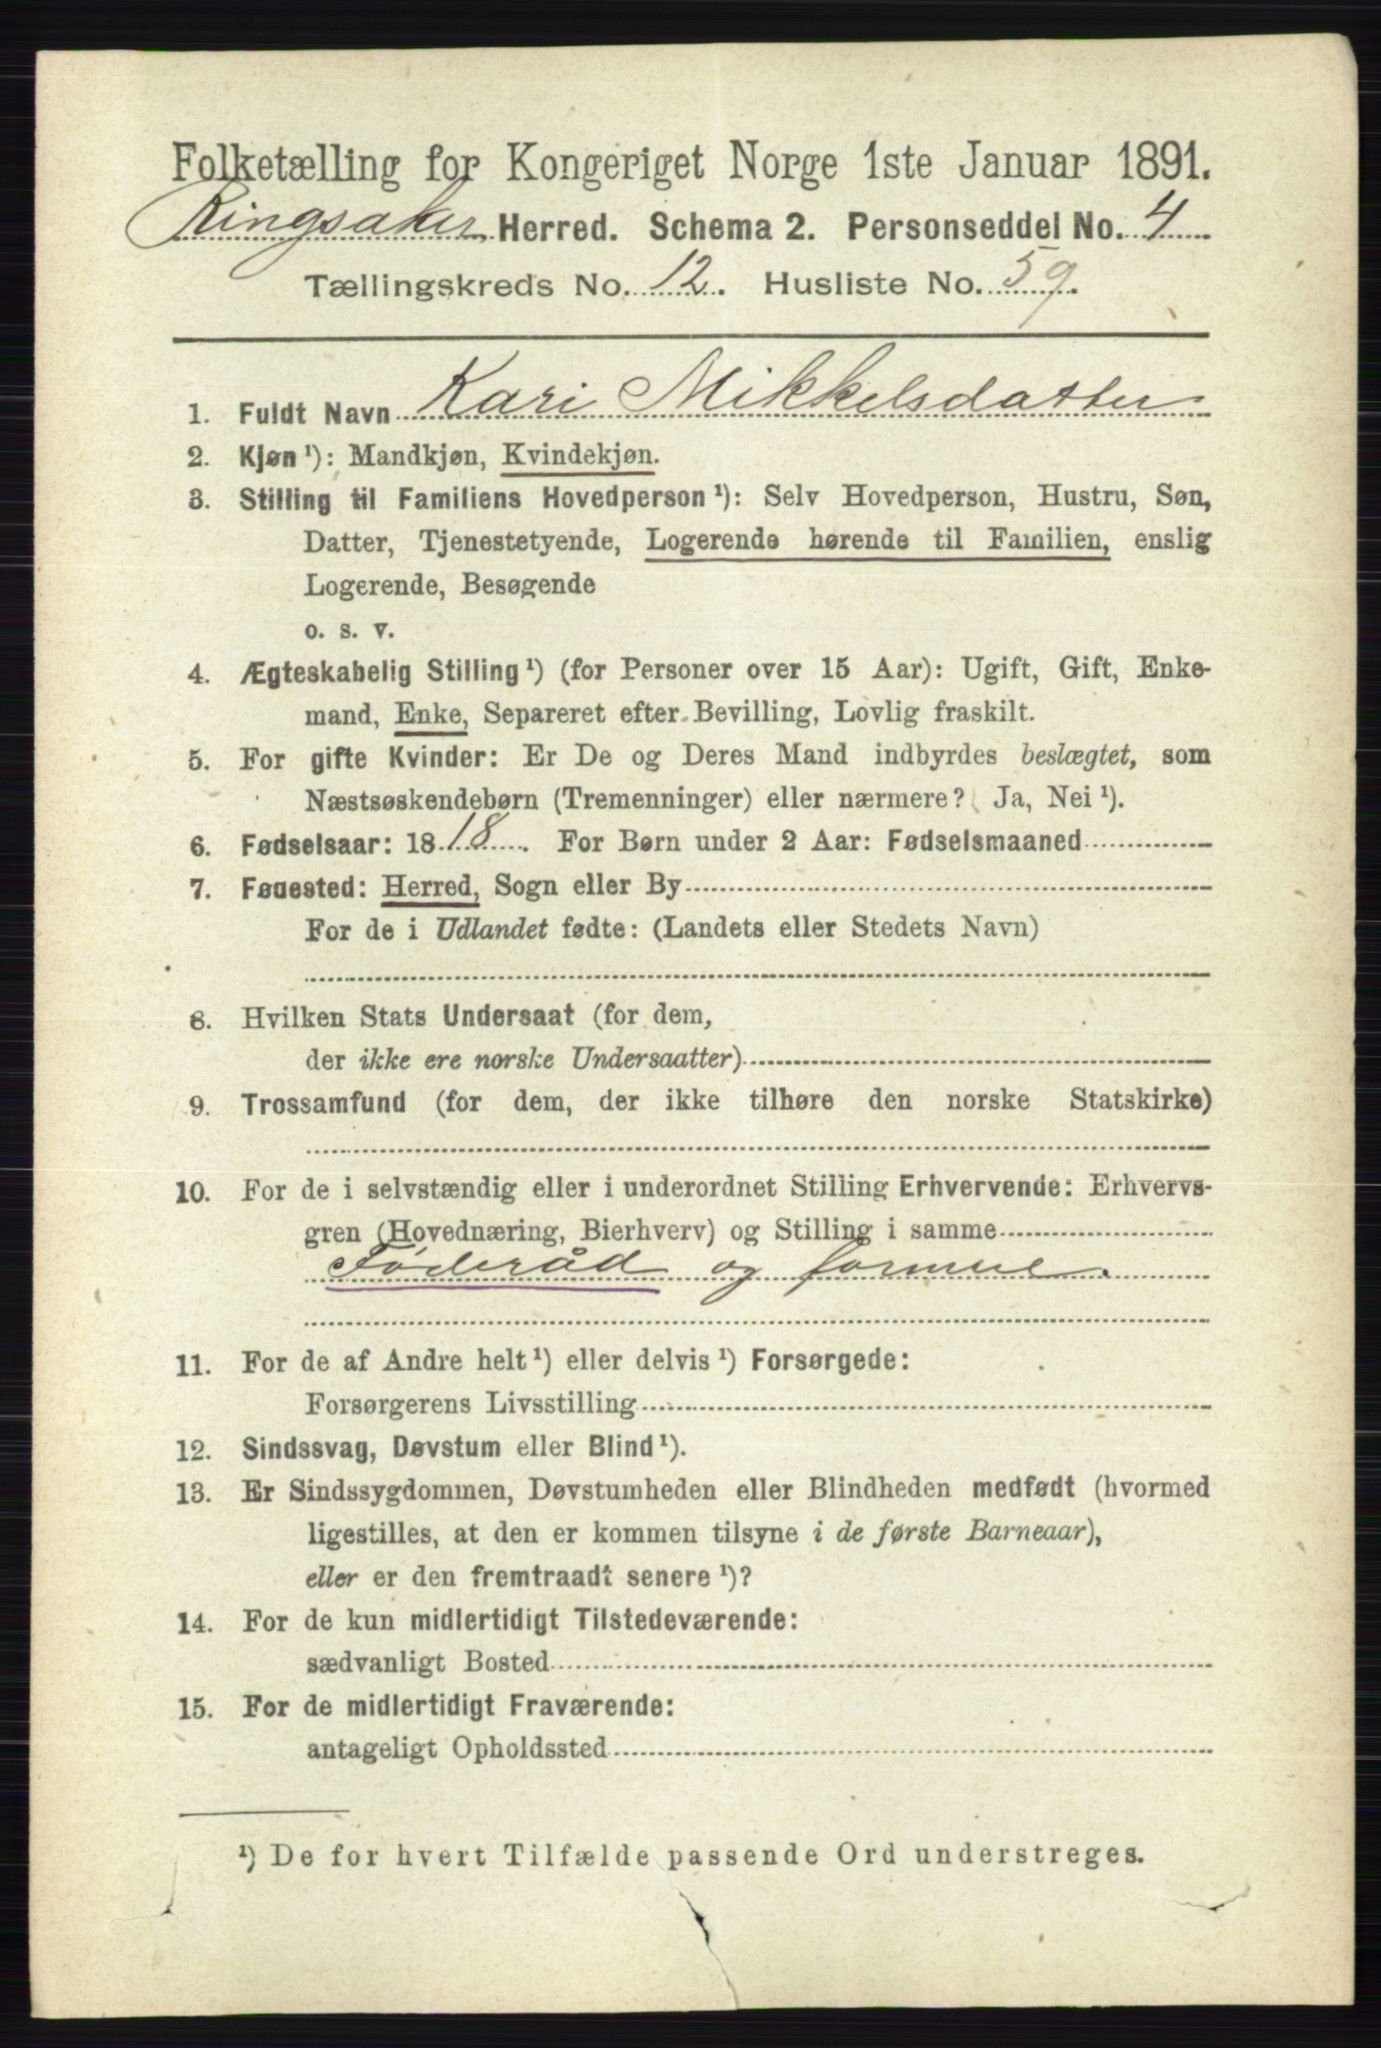 Folketælling for Kongeriget Norge 1ste Januar 1891.
Ringsaker Herred. Schema 2. Personseddel No. 4
Tællingskreds No. 12. Husliste No. 59
1. Fuldt Navn Kari Mikkelsdatter
2. Kjøn ¹): Mandkjøn, Kvindekjøn.
3. Stilling til Familiens Hovedperson ¹): Selv Hovedperson, Hustru, Søn,
Datter, Tjenestetyende, Logerende hørende til Familien, enslig
Logerende, Besøgende
o. s. v.
4. Ægteskabelig Stilling ¹) (for Personer over 15 Aar): Ugift, Gift, Enke-
mand, Enke, Separeret efter Bevilling, Lovlig fraskilt.
5. For gifte Kvinder: Er De og Deres Mand indbyrdes beslægtet, som
Næstsøskendebørn (Tremenninger) eller nærmere? Ja, Nei ¹).
6. Fødselsaar: 1818. For Børn under 2 Aar: Fødselsmaaned
7. Føuested: Herred, Sogn eller By
For de i Udlandet fødte: (Landets eller Stedets Navn)
8. Hvilken Stats Undersaat (for dem,
der ikke ere norske Undersaatter)
9. Trossamfund (for dem, der ikke tilhøre den norske Statskirke)
10. For de i selvstændig eller i underordnet Stilling Erhvervende: Erhvervs-
gren (Hovednæring, Bierhverv) og Stilling i samme
Føderåd og formue.
11. For de af Andre helt ¹) eller delvis ¹) Forsørgede:
Forsørgerens Livsstilling
12. Sindssvag, Døvstum eller Blind ¹).
13. Er Sindssygdommen, Døvstumheden eller Blindheden medfødt (hvormed
ligestilles, at den er kommen tilsyne i de første Barneaar),
eller er den fremtraadt senere ¹)?
14. For de kun midlertidigt Tilstedeværende:
sædvanligt Bosted
15. For de midlertidigt Fraværende:
antageligt Opholdssted
¹) De for hvert Tilfælde passende Ord understreges.